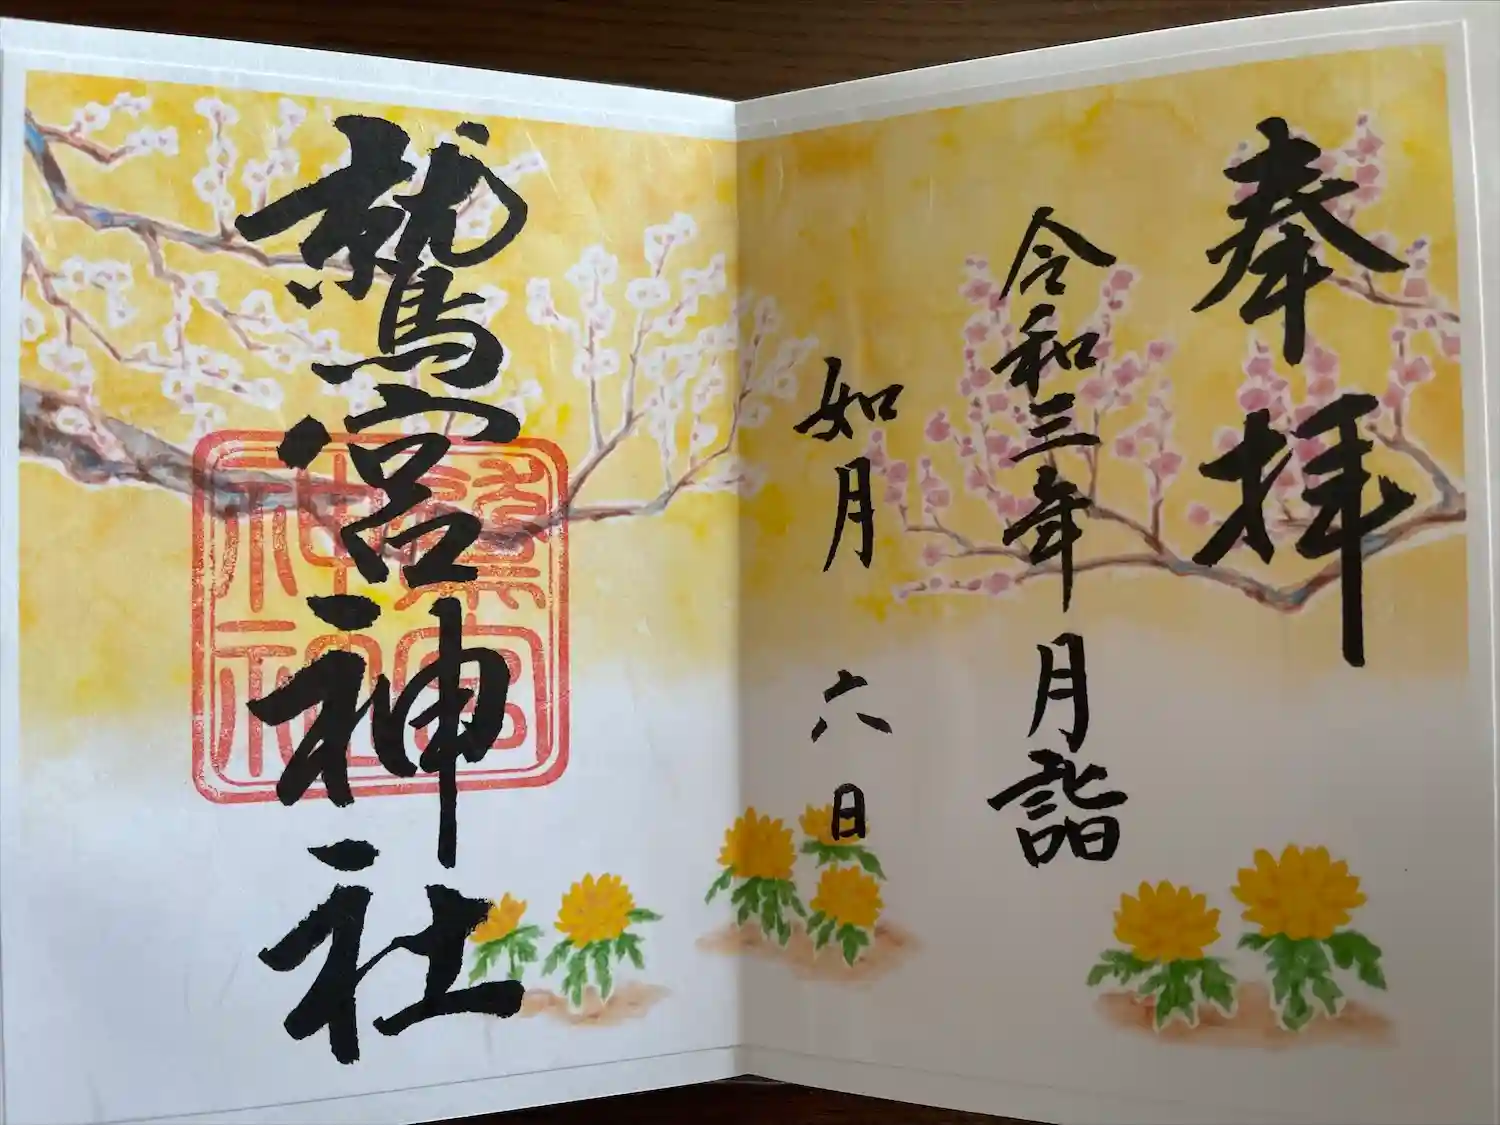 奉拝
令和三年月詣
如月 六日
鷲宮神社
鷲宮
神社